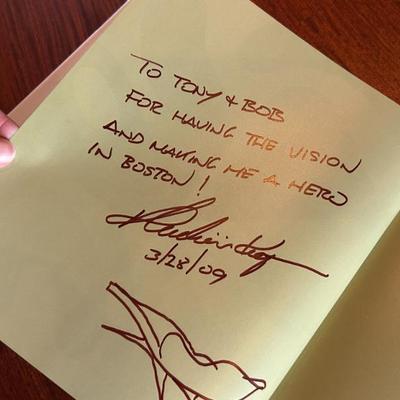 TO TONY & BOB
FOR HAVING THE VISION
AND MAKING ME A HERO
IN BOSTON!
3/28/09